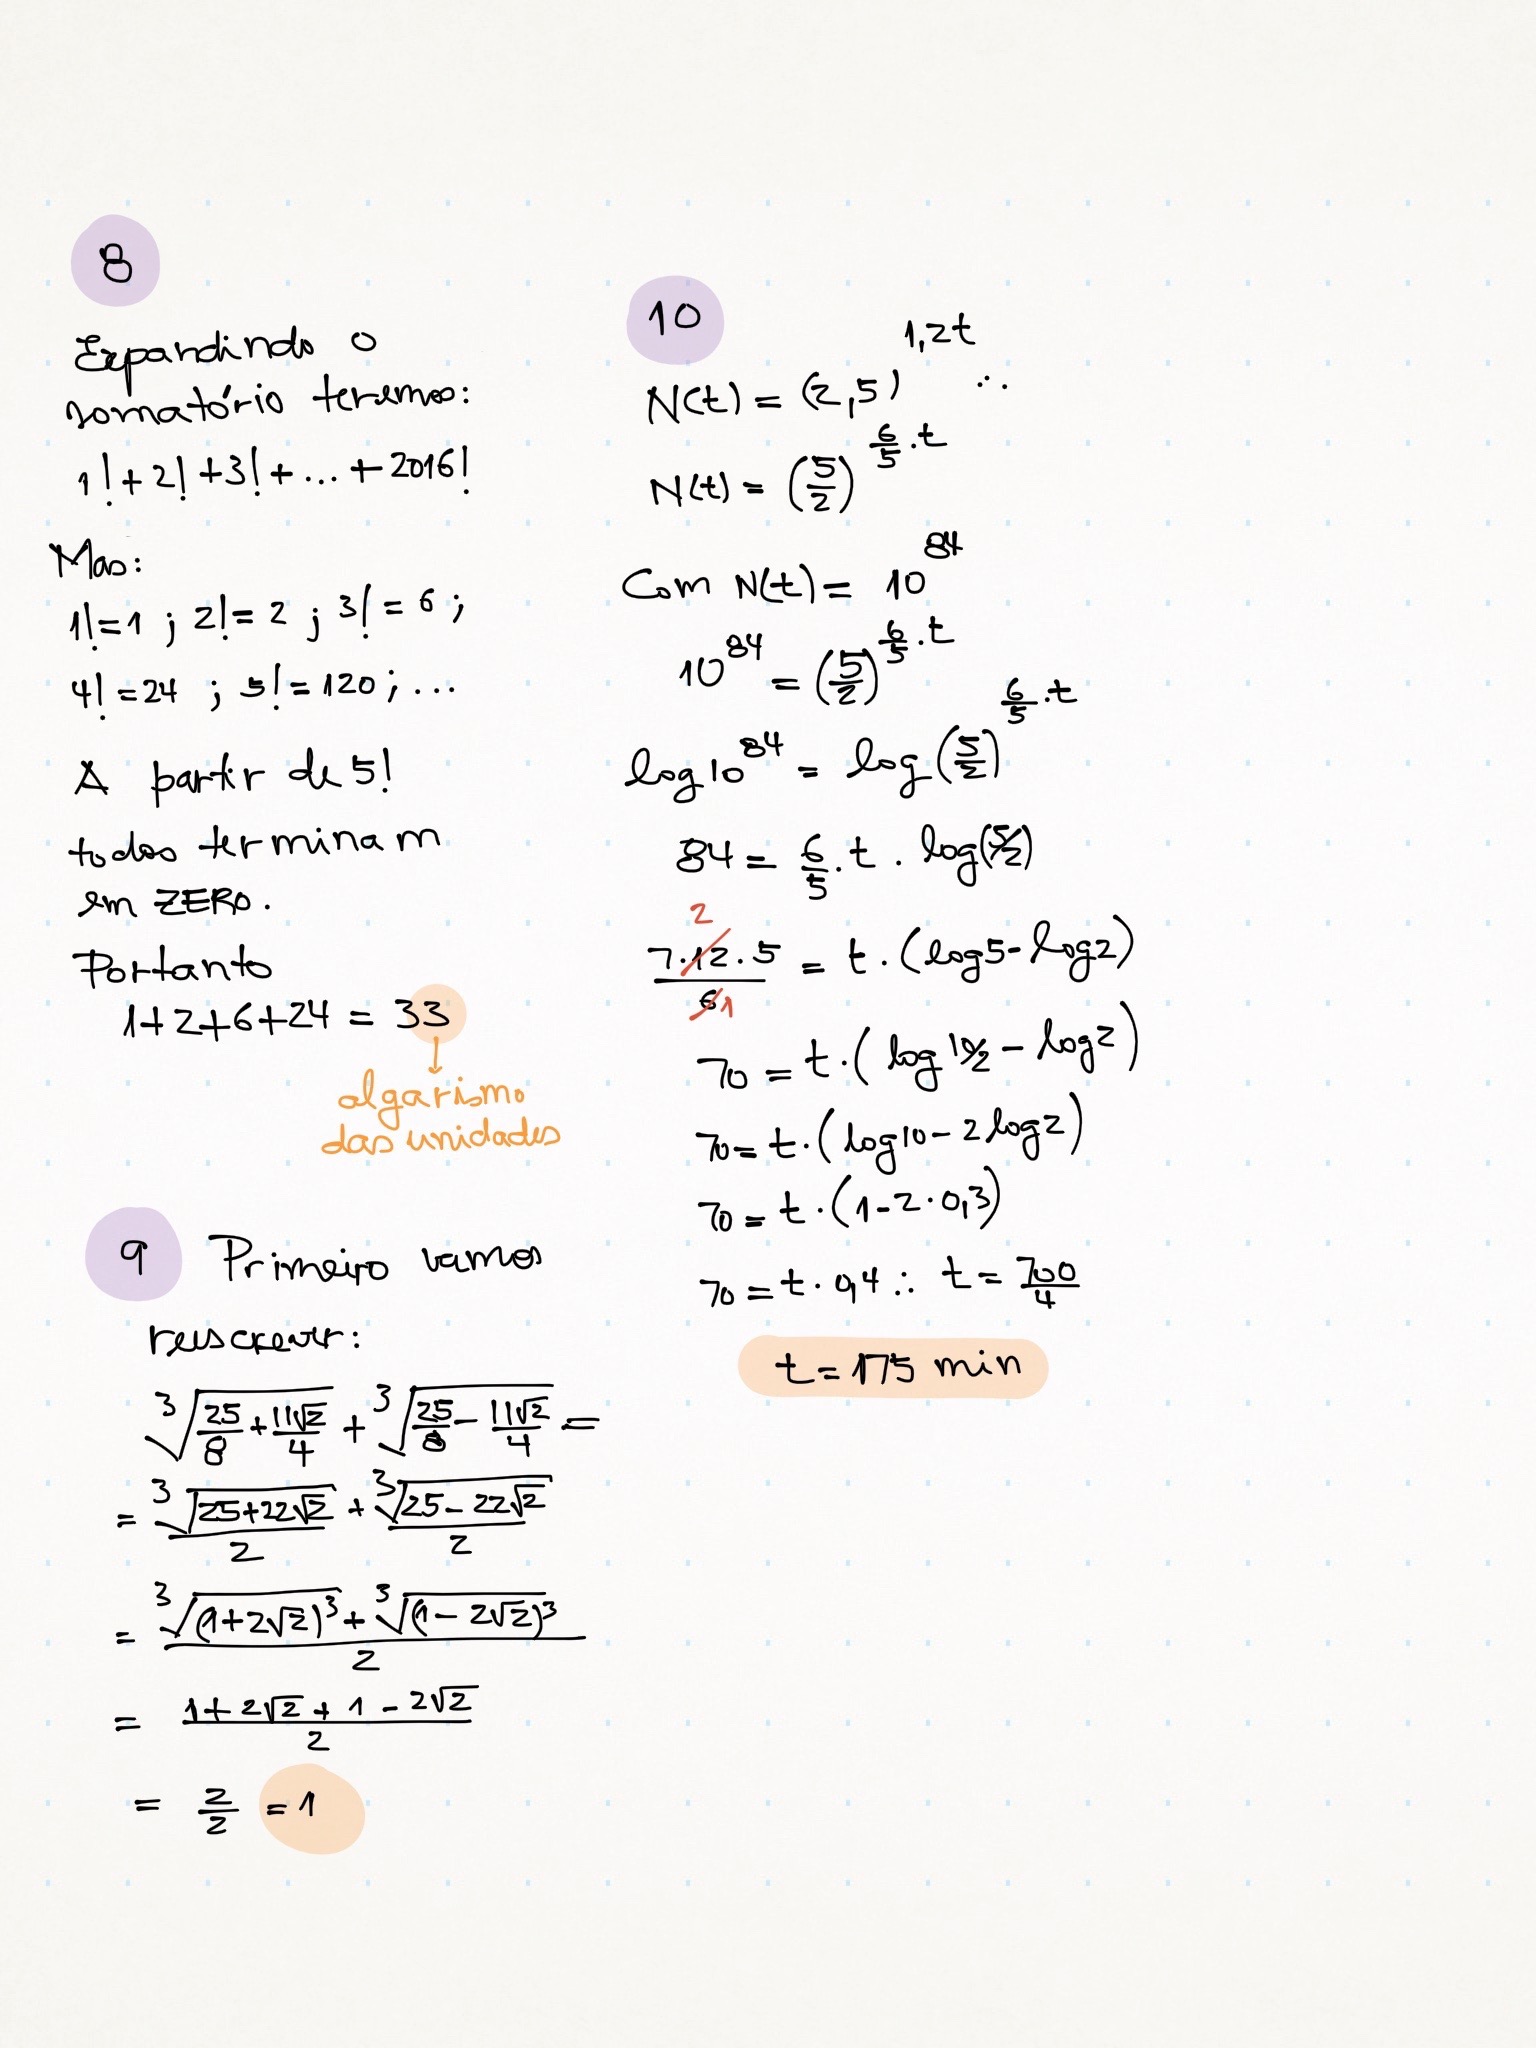 8
Expandindo o
somatório teremos:
1! + 2! + 3! + ... + 2016!
Mas:
1! = 1 ; 2! = 2 ; 3! = 6 ;
4! = 24 ; 5! = 120 ; ...
A partir de 5!
todos terminam
em ZERO.
Portanto
1 + 2 + 6 + 24 = 33
algarismo
das unidades
9 Primeiro vamos
reescrever:
∛(25/8 + 11√2/4) + ∛(25/8 − 11√2/4) =
= ∛(25+22√2)/2 + ∛(25−22√2)/2
= (∛(1+2√2)³ + ∛(1−2√2)³)/2
= (1+2√2 + 1 − 2√2)/2
= 2/2 = 1
10
N(t) = (2,5)^(1,2t) ∴
N(t) = (5/2)^(6/5 · t)
Com N(t) = 10^84
10^84 = (5/2)^(6/5 · t)
log 10^84 = log (5/2)^(6/5 · t)
84 = 6/5 · t · log(5/2)
7·12·5/6 = t · (log5 − log2) 2 1
70 = t · (log 10/2 − log2)
70 = t · (log10 − 2 log2)
70 = t · (1 − 2 · 0,3)
70 = t · 0,4 ∴ t = 700/4
t = 175 min